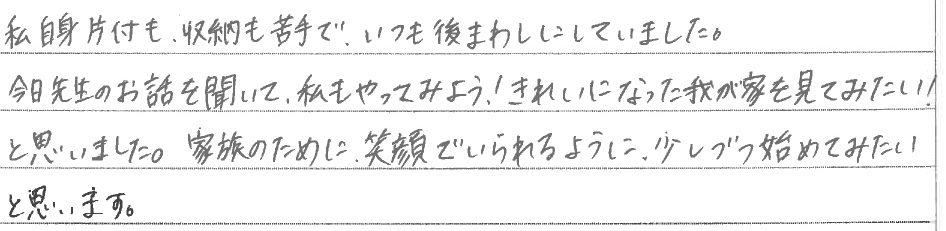 私自身片付も、収納も苦手で、いつも後まわしにしていました。
今日先生のお話を聞いて、私もやってみよう!きれいになった我が家を見てみたい!
と思いました。家族のために、笑顔でいられるように、少しづつ始めてみたい
と思います。